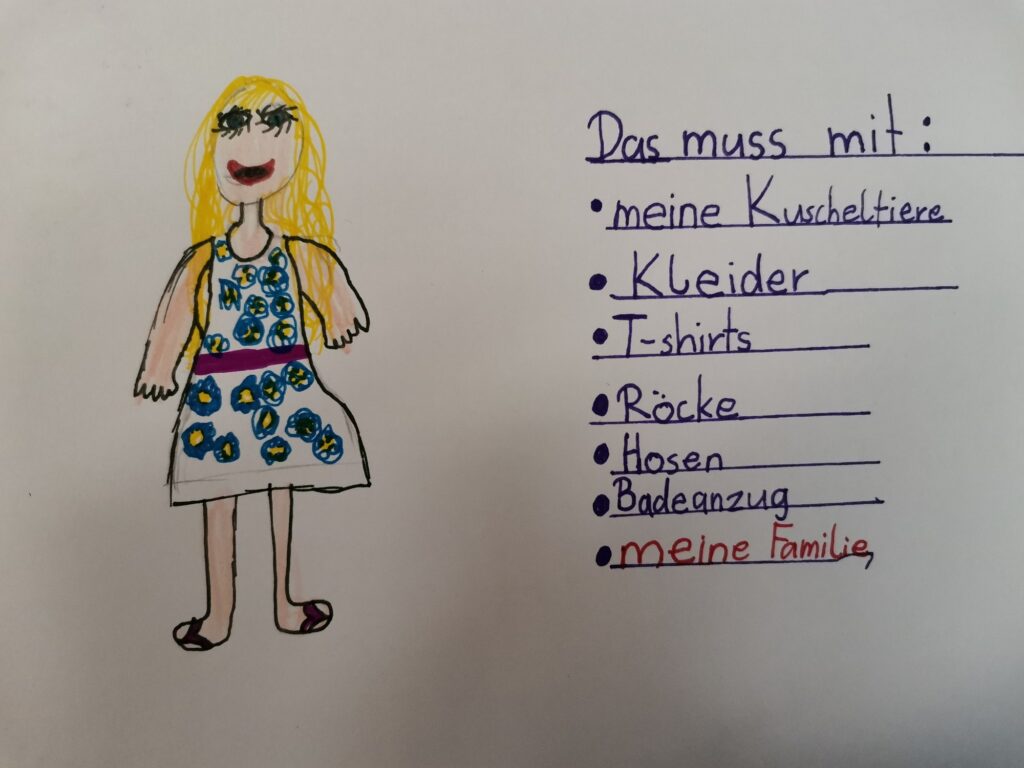 Das muss mit:
• meine Kuscheltiere
• Kleider
• T-shirts
• Röcke
• Hosen
• Badeanzug
• meine Familie,